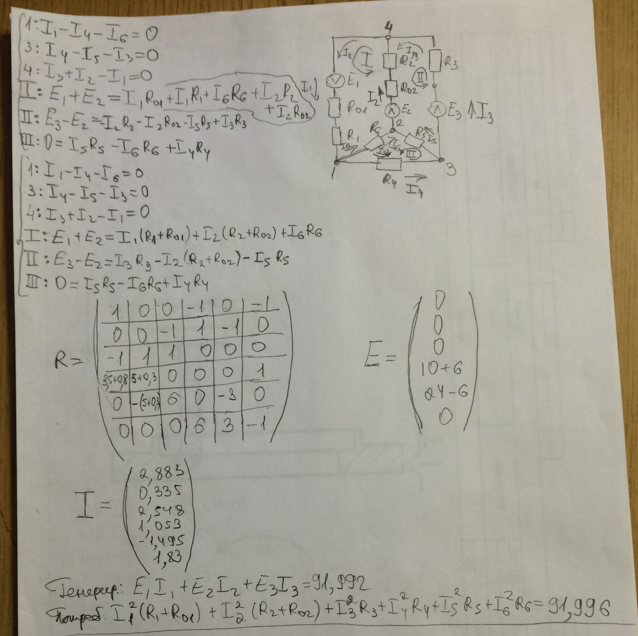 1: I₁-I₄-I₆=0
3: I₄-I₅-I₃=0
4: I₃+I₂-I₁=0
I: E₁+E₂=I₁R₀₁+I₁R₁+I₆R₆+I₂R₂
+I₂R₀₂
II: E₃-E₂=-I₂R₂-I₂R₀₂-I₅R₅+I₃R₃
III: 0=I₅R₅-I₆R₆+I₄R₄
1: I₁-I₄-I₆=0
3: I₄-I₅-I₃=0
4: I₃+I₂-I₁=0
I: E₁+E₂=I₁(R₁+R₀₁)+I₂(R₂+R₀₂)+I₆R₆
II: E₃-E₂=I₃R₃-I₂(R₂+R₀₂)-I₅R₅
III: 0=I₅R₅-I₆R₆+I₄R₄
4
I₁ I I₃ R₂ R₃
E₁ II
R₀₂
R₀₁ I₂ E₂ E₃ ↑I₃
2
R₁ R₆ R₅ I₅
III
1 3
R₄ I₄
R=
1 0 0 -1 0 -1
0 0 -1 1 -1 0
-1 1 1 0 0 0
3,5+0,8 5+0,3 0 0 0 1
0 -(5+0,3) 6 0 -3 0
0 0 0 6 3 -1
E=
0
0
0
10+6
24-6
0
I=
2,883
0,335
2,548
1,053
-1,495
1,83
Генерир.: E₁I₁+E₂I₂+E₃I₃=91,992
Потреб: I₁²(R₁+R₀₁)+I₂²(R₂+R₀₂)+I₃²R₃+I₄²R₄+I₅²R₅+I₆²R₆=91,996